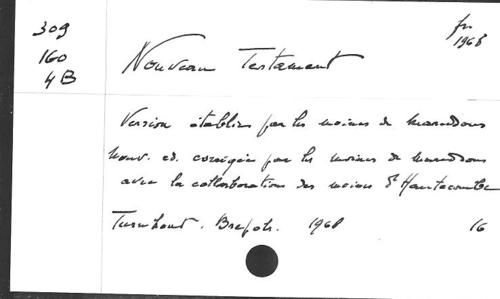 309
160
4B
fr
1968
Nouveau Testament
Version établie par les moines de Maredsous
Nouv. ed. corrigée par les moines de Maredsous
avec la collaboration des moines d'Hautecombe
Turnhout. Brepols. 1968 16